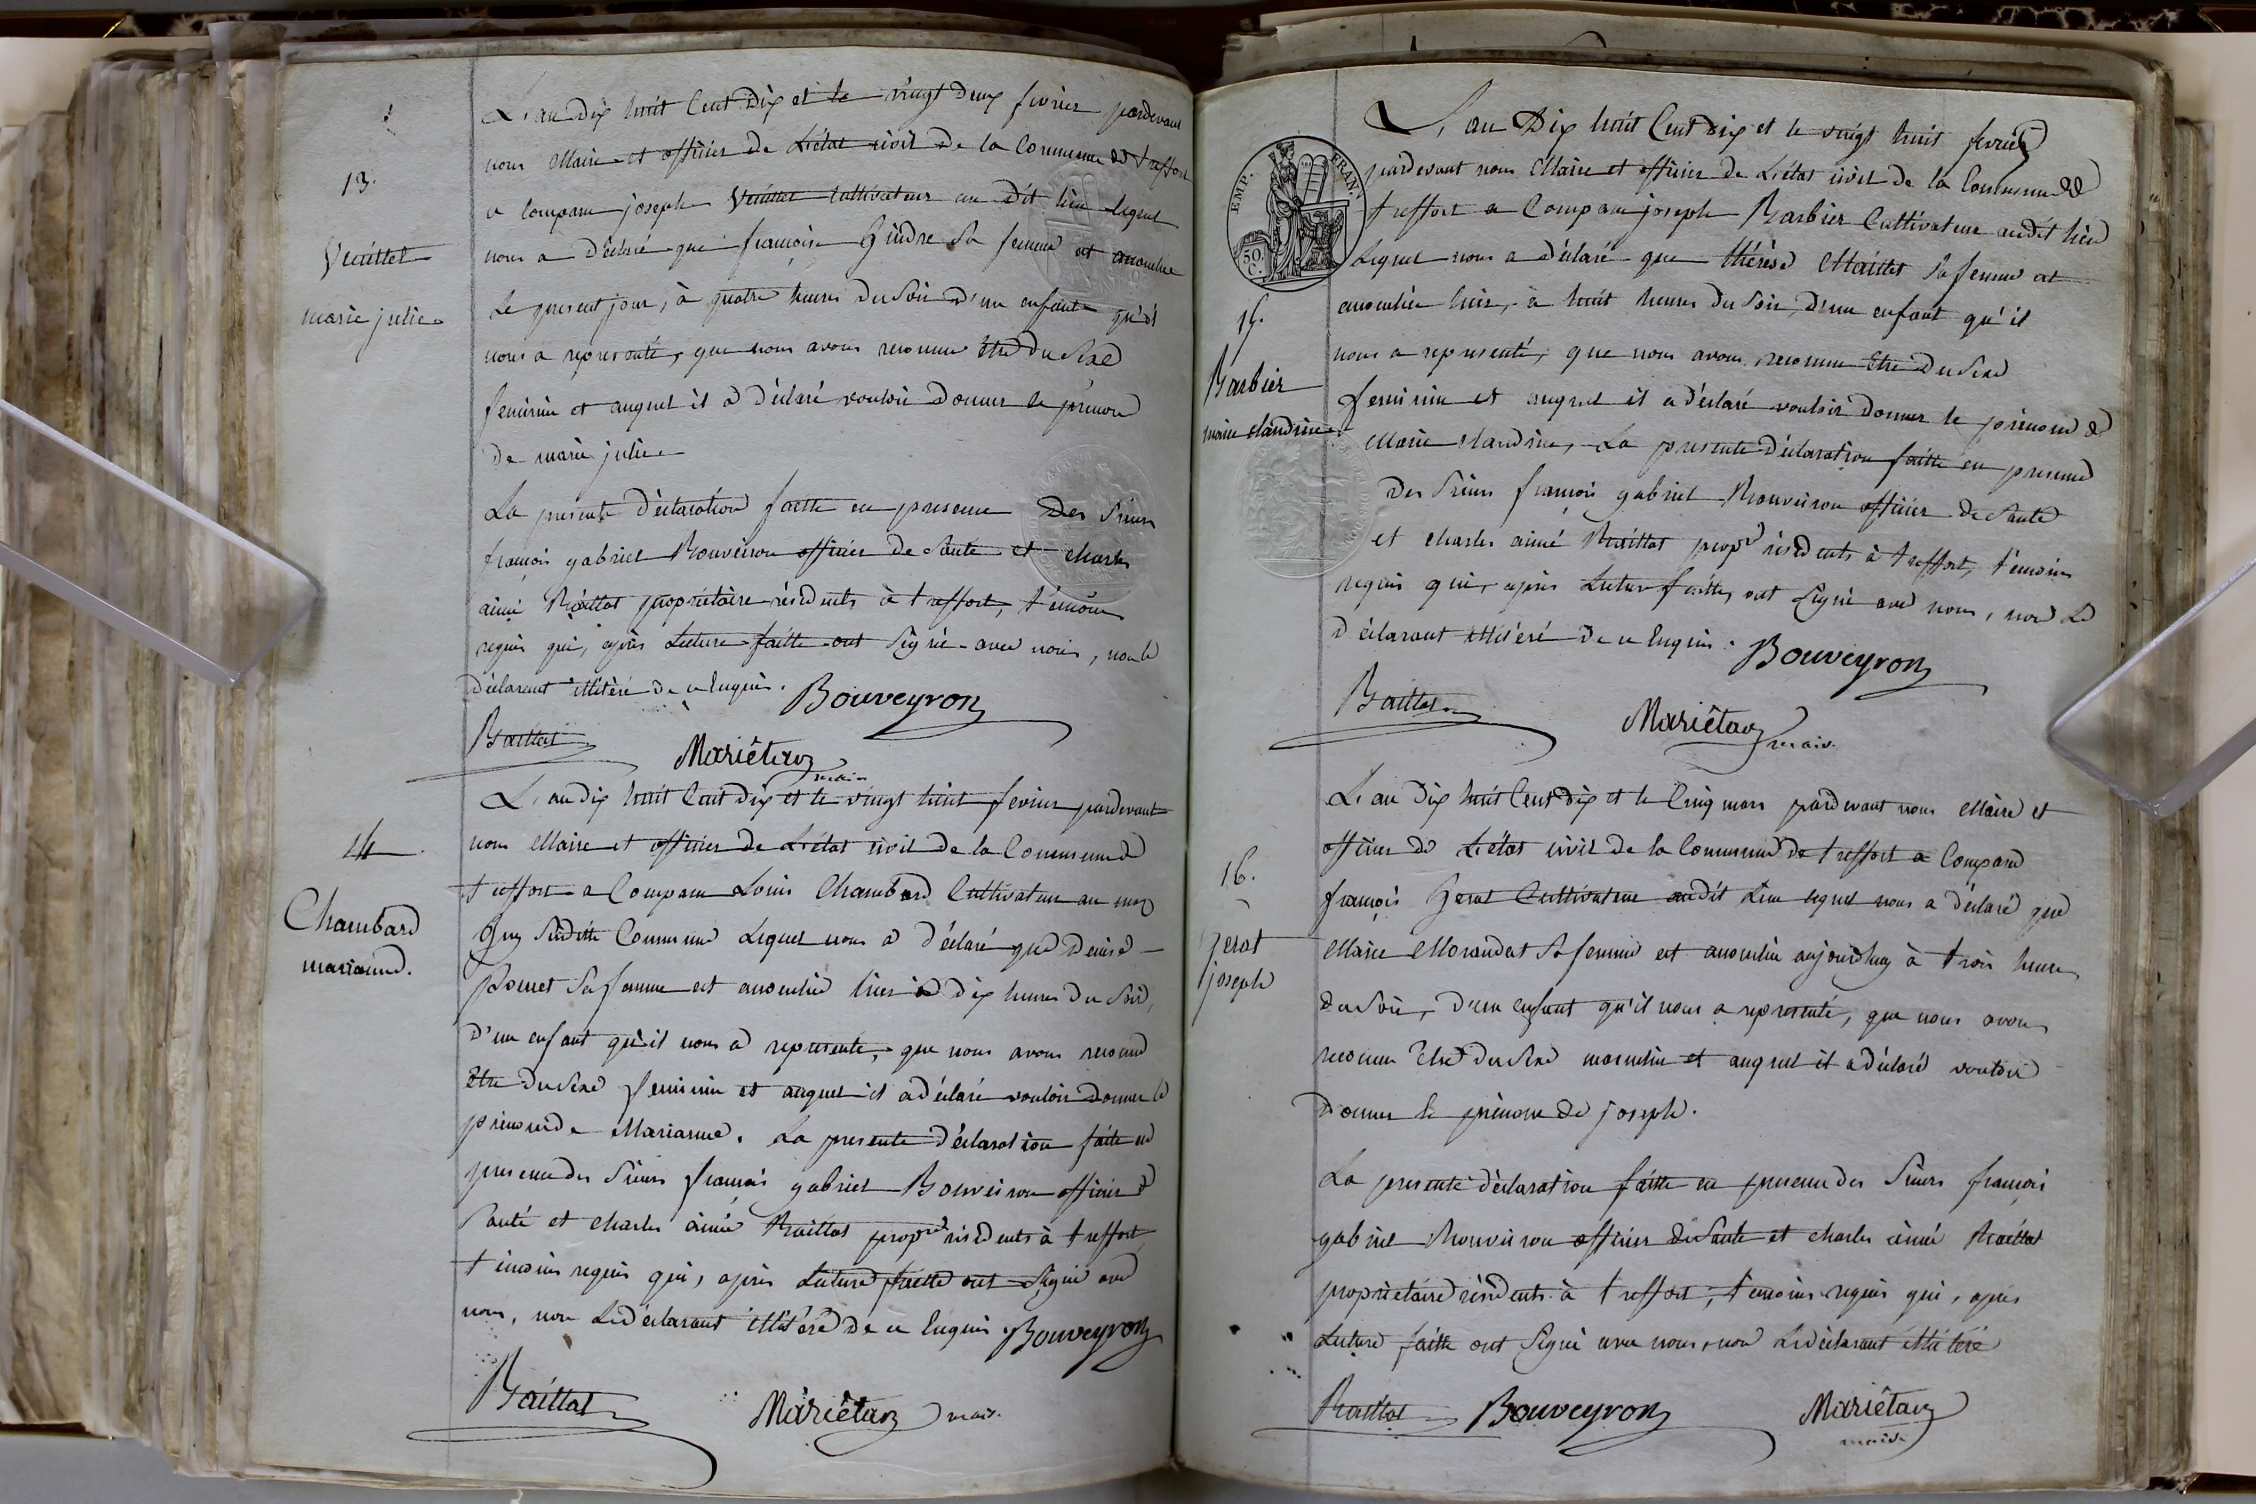 13.
Vuittet
marie julie
L'an dix huit Cent Dix et le vingt deux fevrier pardevant
nous Maire et officier de L'état civil de la Commune de treffort
a Comparu joseph Vuittet Cultivateur au dit lieu lequel
nous a déclaré que françoise Gindre Sa femme est accouchée
Le present jour, à quatre heures Du Soir D'un enfant qu'il
nous a representé, que nous avons reconnu être du Sexe
feminin et auquel il a déclaré vouloir Donner le prénom
de marie julie
La presente Déclaration faitte en presence Des Sieurs
françois gabriel Bouveiron officier de Santé et charles
aimé Baillat propriétaire résidents à treffort, témoins
requis qui, après Lecture faitte ont Signé avec nous, non le
déclarant illitéré de ce Enquis. Bouveyron
Baillat
Mariétan maire
14
Chambard
marianne.
L'an dix huit Cent dix et le vingt huit fevrier pardevant
nous Maire et officier de L'état civil de la Commune de
treffort a Comparu Louis Chambard Cultivateur au
Susditte Commune Lequel nous a déclaré que Denise
Sa femme est accouchée hier à dix heures Du Soir,
D'un enfant qu'il nous a representé, que nous avons reconnu
être du Sexe feminin et auquel il a déclaré vouloir Donner le
prénom de Marianne. La presente déclaration faite en
presence des Sieurs françois gabriel Bouveiron officier de
Santé et charles aimé Baillat propre résidents à treffort
témoins requis qui, après Lecture faitte ont Signé avec
nous, non Le déclarant illitéré De ce Enquis Bouveyron
Baillat
Mariétan maire
EMP. FRAN.
50. C.
15.
Barbier
marie claudine
L'an Dix huit Cent dix et le vingt huit fevrier
pardevant nous Maire et officier de L'état civil de la Commune de
treffort a Comparu joseph Barbier Cultivateur audit lieu
Lequel nous a déclaré que thérèse Maillet Sa femme est
accouchée hier, à huit heures du Soir, D'un enfant qu'il
nous a representé, que nous avons reconnu être du Sexe
feminin et auquel il a déclaré vouloir donner le prénom de
Marie claudine, La presente Déclaration faitte en presence
Des Sieurs françois gabriel Bouveiron officier de Santé
et charles aimé Baillat propre résidents à treffort, témoins
requis qui, après Lecture faitte, ont Signé avec nous, non Le
Déclarant illitéré De ce Enquis. Bouveyron
Baillat
Mariétan maire
16.
Gerat
joseph
L'an Dix huit Cent dix et le Cinq mars pardevant nous Maire et
officier de L'état civil de la Commune de treffort a Comparu
françois Gerat Cultivateur audit Lieu lequel nous a déclaré que
Marie Morandat Sa femme est accouchée aujourdhuy à trois heures
du Soir, D'un enfant qu'il nous a representé, que nous avons
reconnu être du Sexe masculin et auquel il a déclaré vouloir
Donner le prénom de joseph.
La presente déclaration faitte en presence des Sieurs françois
gabriel Bouveiron officier de Santé et charles aimé Baillat
propriétaire résidents à treffort, témoins requis qui, après
Lecture faitte ont Signé avec nous, non Le déclarant illitéré
Baillat Bouveyron Mariétan
maire